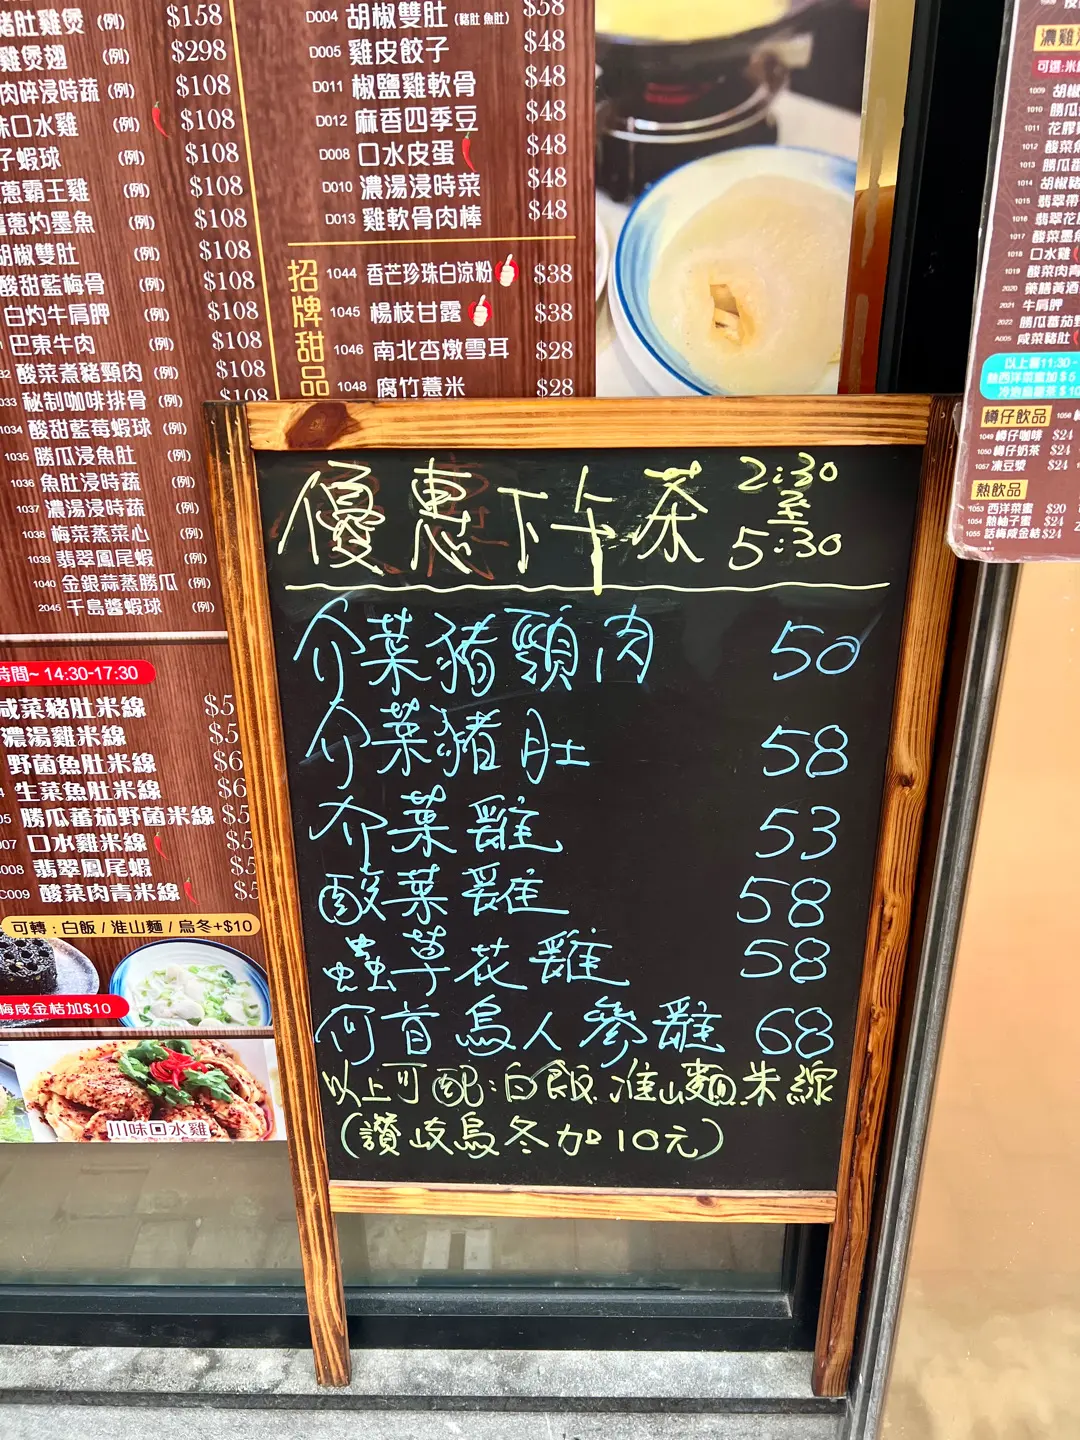 豬肚雞煲 $158
雞煲翅 (例) $298
肉碎浸時蔬 (例) $108
味口水雞 (例) $108
子蝦球 (例) $108
蔥霸王雞 (例) $108
蔥灼墨魚 (例) $108
胡椒雙肚 (例) $108
酸甜藍梅骨 (例) $108
白灼牛肩胛 (例) $108
巴東牛肉 (例) $108
酸菜煮豬頸肉 (例) $108
033 秘制咖啡排骨 (例) $108
1034 酸甜藍莓蝦球 (例)
1035 勝瓜浸魚肚 (例)
1036 魚肚浸時蔬 (例)
1037 濃湯浸時蔬 (例)
1038 梅菜蒸菜心 (例)
1039 翡翠鳳尾蝦 (例)
1040 金銀蒜蒸勝瓜 (例)
2045 千島醬蝦球 (例)
時間~ 14:30-17:30
咸菜豬肚米線 $5
濃湯雞米線 $5
野菌魚肚米線 $6
生菜魚肚米線 $6
05 勝瓜蕃茄野菌米線 $5
007 口水雞米線 $5
C008 翡翠鳳尾蝦 $5
C009 酸菜肉青米線 $5
可轉：白飯 / 淮山麵 / 烏冬+$10
梅咸金桔加$10
川味口水雞
D004 胡椒雙肚 (豬肚 魚肚) $58
D005 雞皮餃子 $48
D011 椒鹽雞軟骨 $48
D012 麻香四季豆 $48
D008 口水皮蛋 $48
D010 濃湯浸時菜 $48
D013 雞軟骨肉棒 $48
招牌甜品
1044 香芒珍珠白涼粉 $38
1045 楊枝甘露 $38
1046 南北杏燉雪耳 $28
1048 腐竹薏米 $28
優惠下午茶 2:30至5:30
介菜豬頸肉 50
介菜豬肚 58
介菜雞 53
酸菜雞 58
蟲草花雞 58
何首烏人參雞 68
以上可配:白飯.淮山麵.米線
(讚岐烏冬加10元)
濃雞湯
可選:米線
1009 胡椒
1010 勝瓜
1011 花膠
1012 酸菜魚
1013 勝瓜蕃
1014 胡椒豬
1015 翡翠帶
1016 翡翠花
1017 酸菜墨魚
1018 口水雞
1019 酸菜肉青
2020 藥膳黃酒
2021 牛肩胛
2022 勝瓜蕃茄野
A005 咸菜豬肚
以上單11:30 -
樽仔飲品
1049 樽仔咖啡 $24
1050 樽仔奶茶 $24
1057 凍豆漿 $24
熱飲品
1053 西洋菜蜜 $20
1054 熱柚子蜜 $24
1055 話梅咸金桔 $24